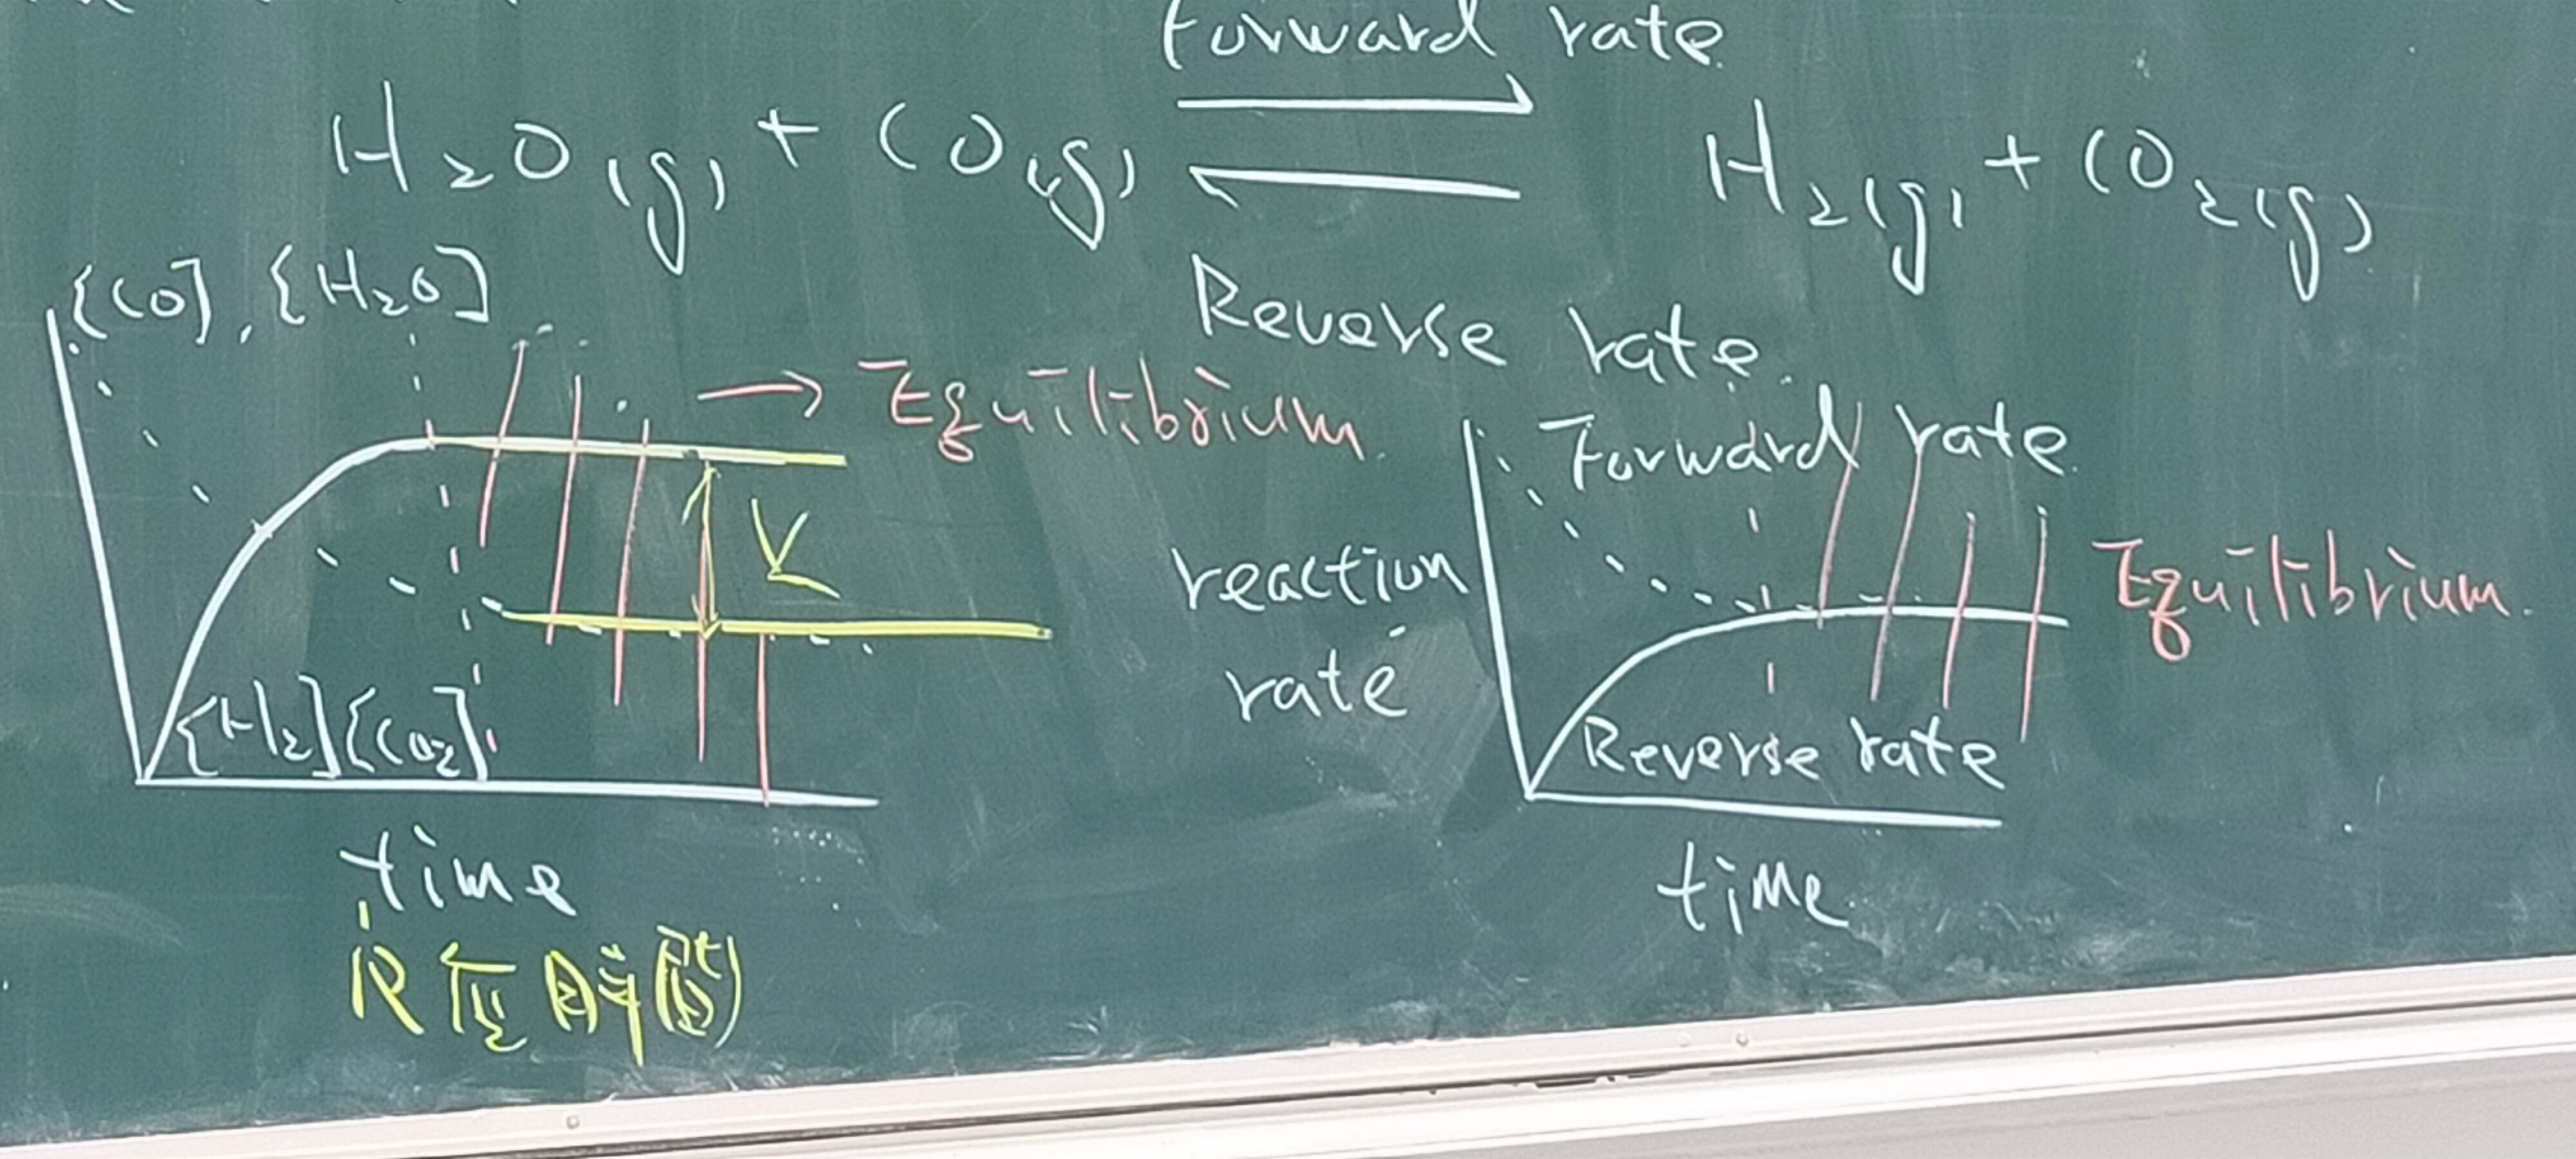 Forward rate
H₂O(g) + CO(g) ⇌ H₂(g) + CO₂(g)
Reverse rate
[CO], [H₂O]
→ Equilibrium
K
[H₂][CO₂]
time
reaction rate
Forward rate
Equilibrium
Reverse rate
time